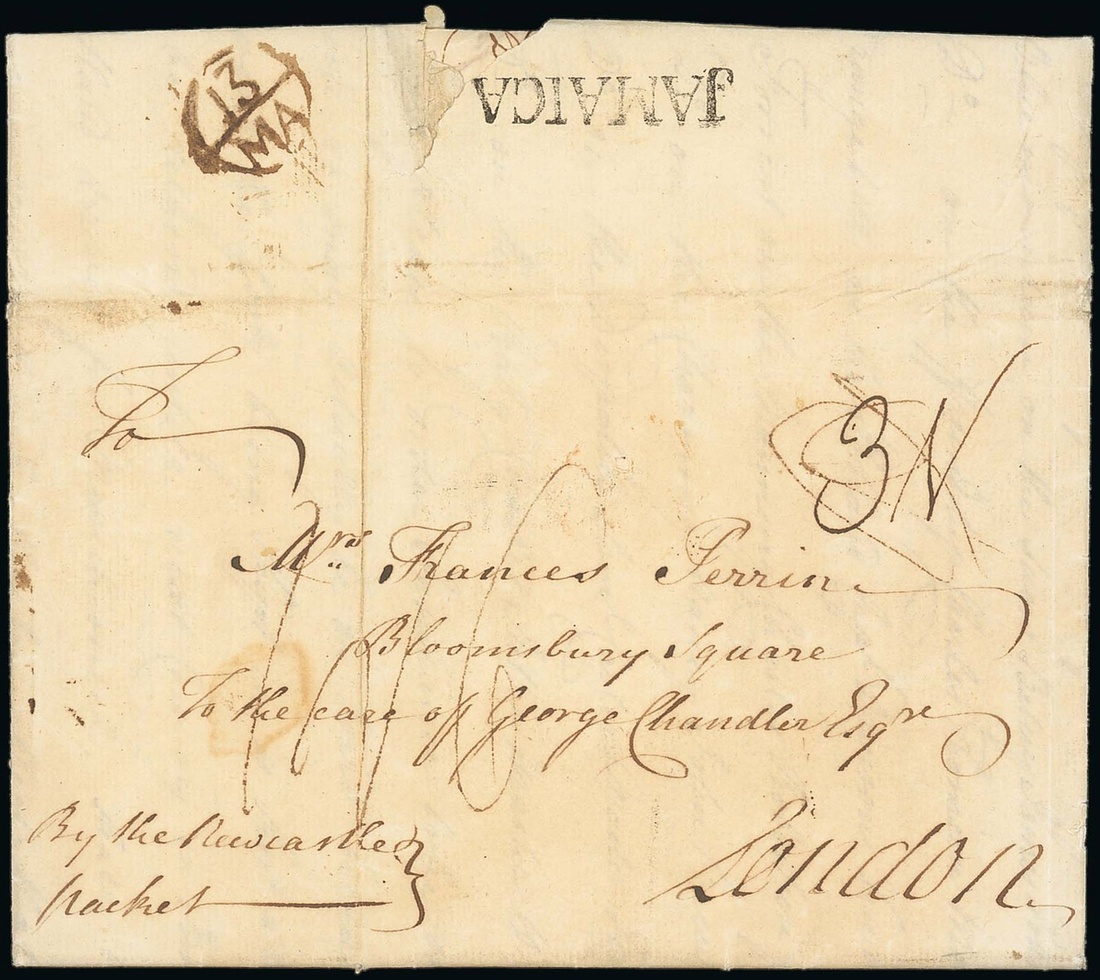 13
MA
JAMAICA
3 N
To
Mrs Frances Perrin
Bloomsbury Square
To the care of George Chandler Esqre
London
By the Newcastle
packet